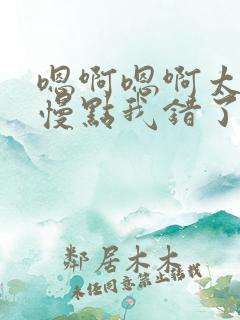 嗯啊嗯啊太
慢點我錯了
鄰居木木
未经同意禁止转载